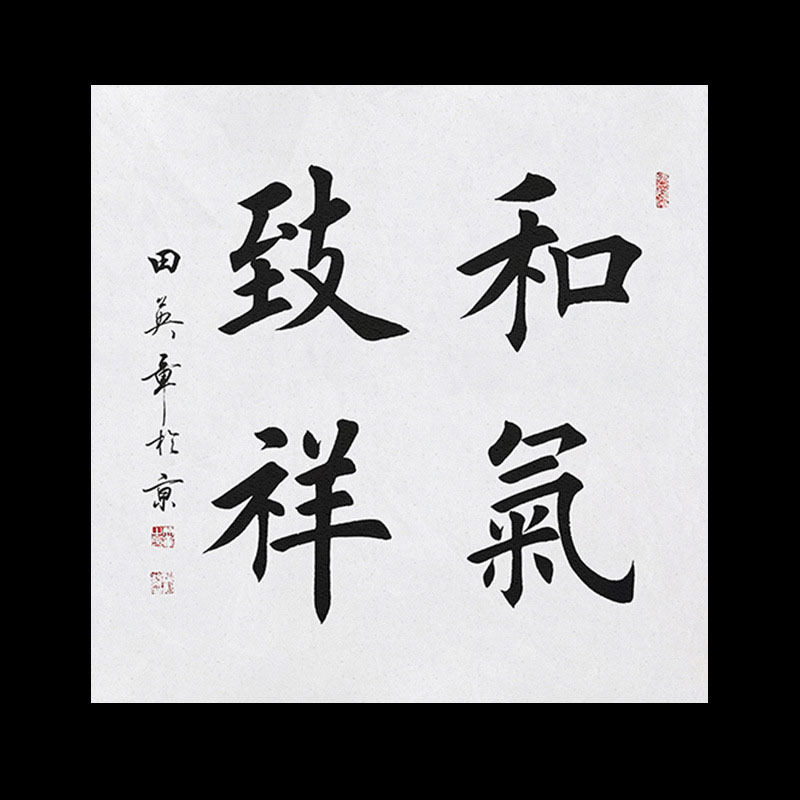 和氣
致祥
田英章於京